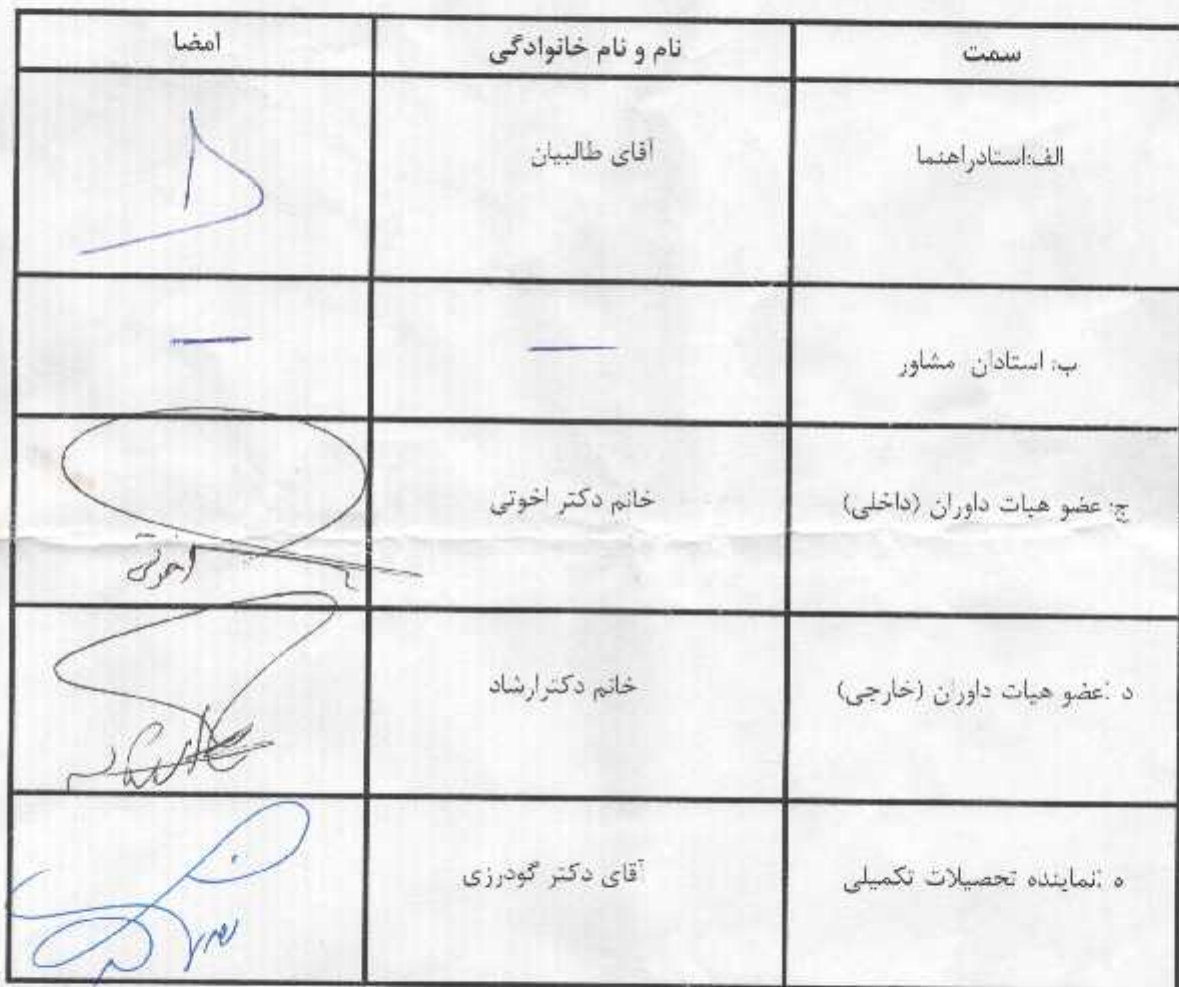 سمت نام و نام خانوادگی امضا
الف:استادراهنما آقای طالبیان
ب: استادان مشاور — —
ج: عضو هیات داوران (داخلی) خانم دکتر اخوتی
اخوتی
د :عضو هیات داوران (خارجی) خانم دکترارشاد
ه :نماینده تحصیلات تکمیلی آقای دکتر گودرزی